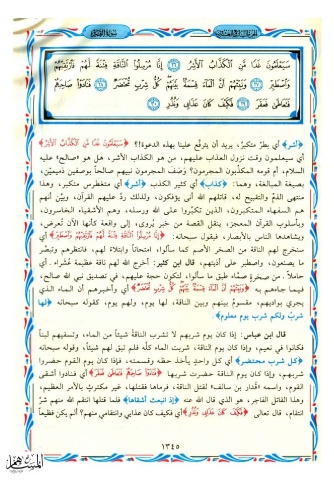 الجزء السابع والعشرون
سورة القمر
سَيَعْلَمُونَ غَدًا مَّنِ الْكَذَّابُ الْأَشِرُ ۝٢٦ إِنَّا مُرْسِلُوا النَّاقَةِ فِتْنَةً لَّهُمْ فَارْتَقِبْهُمْ
وَاصْطَبِرْ ۝٢٧ وَنَبِّئْهُمْ أَنَّ الْمَاءَ قِسْمَةٌ بَيْنَهُمْ كُلُّ شِرْبٍ مُّحْتَضَرٌ ۝٢٨ فَنَادَوْا صَاحِبَهُمْ
فَتَعَاطَى فَعَقَرَ ۝٢٩ فَكَيْفَ كَانَ عَذَابِي وَنُذُرِ ۝٣٠
﴿أشر﴾ أي بطر متكبر، يريد أن يترفّع علينا بهذه الدعوة!؟ ﴿سَيَعْلَمُونَ غَدًا مَّنِ الْكَذَّابُ الْأَشِرُ﴾
أي سيعلمون وقت نزول العذاب عليهم، من هو الكذاب الأشر، هل هو «صالح» عليه
السلام، أم قومه المكذّبون المجرمون؟ وصف المجرمون نبيهم صالحاً بوصفين ذميمين،
بصيغة المبالغة، وهما: ﴿كذاب﴾ أي كثير الكذب ﴿أشر﴾ أي متغطرس متكبر، وهذا
منتهى الذمّ والتقبيح له، قاتلهم الله أنى يؤفكون، ولذلك ردّ عليهم القرآن، وبيّن أنهم
هم السفهاء المتكبرون، الذين تكبّروا على الله ورسله، وهم الأشقياء الخاسرون،
وبأسلوب القرآن المعجز، ينقل القصة من خبر يُروى، إلى واقعة كأنها الآن تُعرض،
ويشاهدها الناس بالأبصار، فيقول سبحانه: ﴿إِنَّا مُرْسِلُوا النَّاقَةِ فِتْنَةً لَّهُمْ فَارْتَقِبْهُمْ وَاصْطَبِرْ﴾ أي
سنخرج لهم الناقة من الصخر الأصم كما سألوا، امتحاناً وابتلاءً لهم، فانتظرهم وتبصّر
ما يصنعون، واصطبر على أذيتهم، قال ابن كثير: أخرج الله لهم ناقة عظيمة عُشراء، أي
حاملاً، من صخرة صماء طبق ما سألوا، لتكون حجة عليهم، في تصديق نبي الله صالح،
فيما جاءهم به ﴿وَنَبِّئْهُمْ أَنَّ الْمَاءَ قِسْمَةٌ بَيْنَهُمْ كُلُّ شِرْبٍ مُّحْتَضَرٌ﴾ أي وأخبرهم أن الماء الذي
يجري بواديهم، مقسومٌ بينهم وبين الناقة، لها يوم، ولهم يوم، كقوله سبحانه ﴿لها
شربٌ ولكم شرب يوم معلوم﴾.
قال ابن عباس: إذا كان يوم شربهم لا تشرب الناقة شيئاً من الماء، وتسقيهم لبناً
فكانوا في نعيم، وإذا كان يوم الناقة، شربت الماء كلّه فلم تبق لهم شيئاً، وقوله سبحانه
﴿كل شرب محتضر﴾ أي كل واحد يأخذ حظه وقسمته، فإذا كان يوم القوم حضروا
شربهم، وإذا كان يوم الناقة حضرت شربها ﴿فَنَادَوْا صَاحِبَهُمْ فَتَعَاطَى فَعَقَرَ﴾ أي فنادوا أشقى
القوم، واسمه «قُدار بن سالف» لقتل الناقة، فرماها فقتلها، غير مكترثٍ بالأمر العظيم،
وهذا القاتل الفاجر، هو الذي قال الله عنه ﴿إذ انبعث أشقاها﴾ فلما قتلها انتقم الله منهم شرّ
انتقام، قال تعالى ﴿فَكَيْفَ كَانَ عَذَابِي وَنُذُرِ﴾ أي فكيف كان عذابي وانتقامي منهم؟ ألم يكن فظيعاً
١٣٤٥